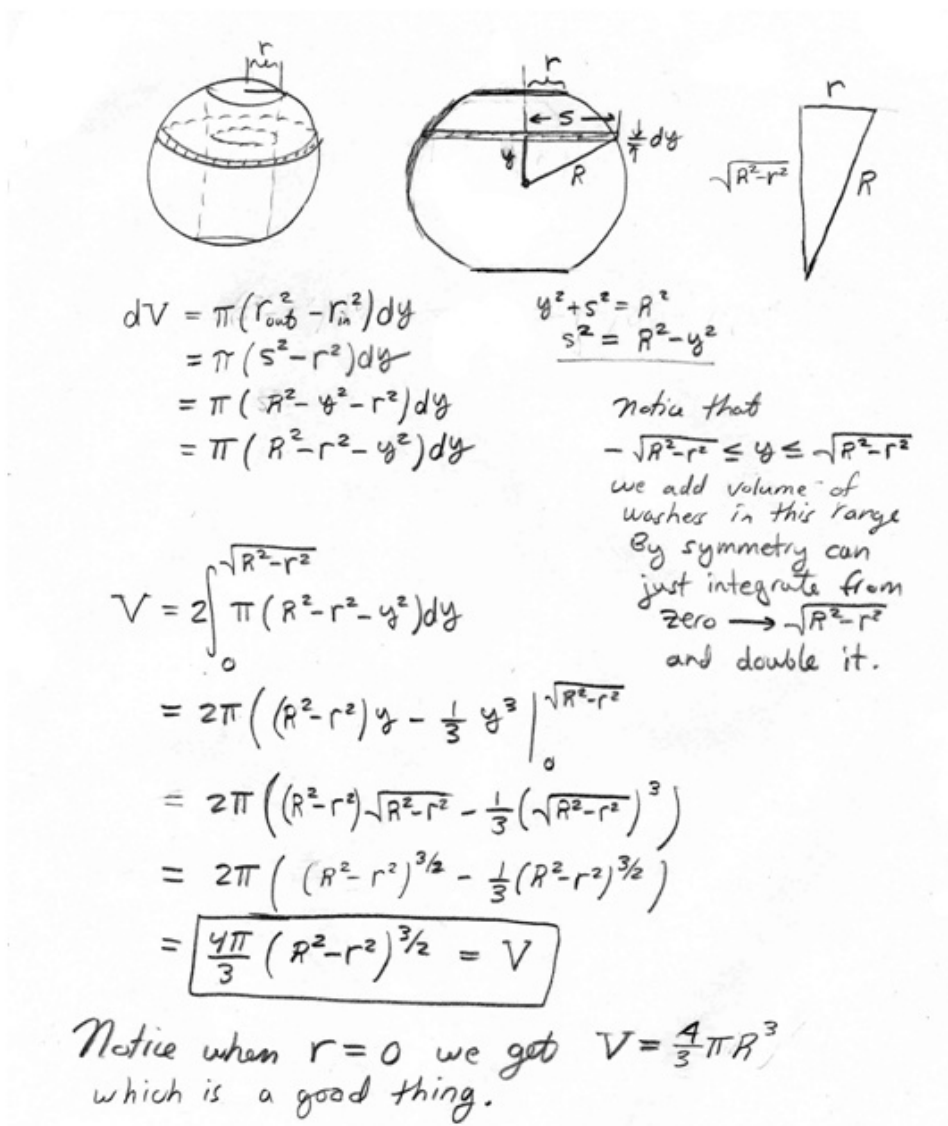 r
r
s
y
R
dy
r
√R²-r²
R
dV = π(r²out - r²in)dy
= π(s² - r²)dy
= π(R² - y² - r²)dy
= π(R² - r² - y²)dy
y² + s² = R²
s² = R² - y²
Notice that
- √R²-r² ≤ y ≤ √R²-r²
we add volume of
washers in this range
By symmetry can
just integrate from
zero → √R²-r²
and double it.
V = 2∫₀^√R²-r² π(R² - r² - y²)dy
= 2π((R² - r²)y - 1/3 y³ |₀^√R²-r²
= 2π((R² - r²)√R²-r² - 1/3(√R²-r²)³)
= 2π((R² - r²)^3/2 - 1/3(R² - r²)^3/2)
= 4π/3 (R² - r²)^3/2 = V
Notice when r = 0 we get V = 4/3 πR³
which is a good thing.